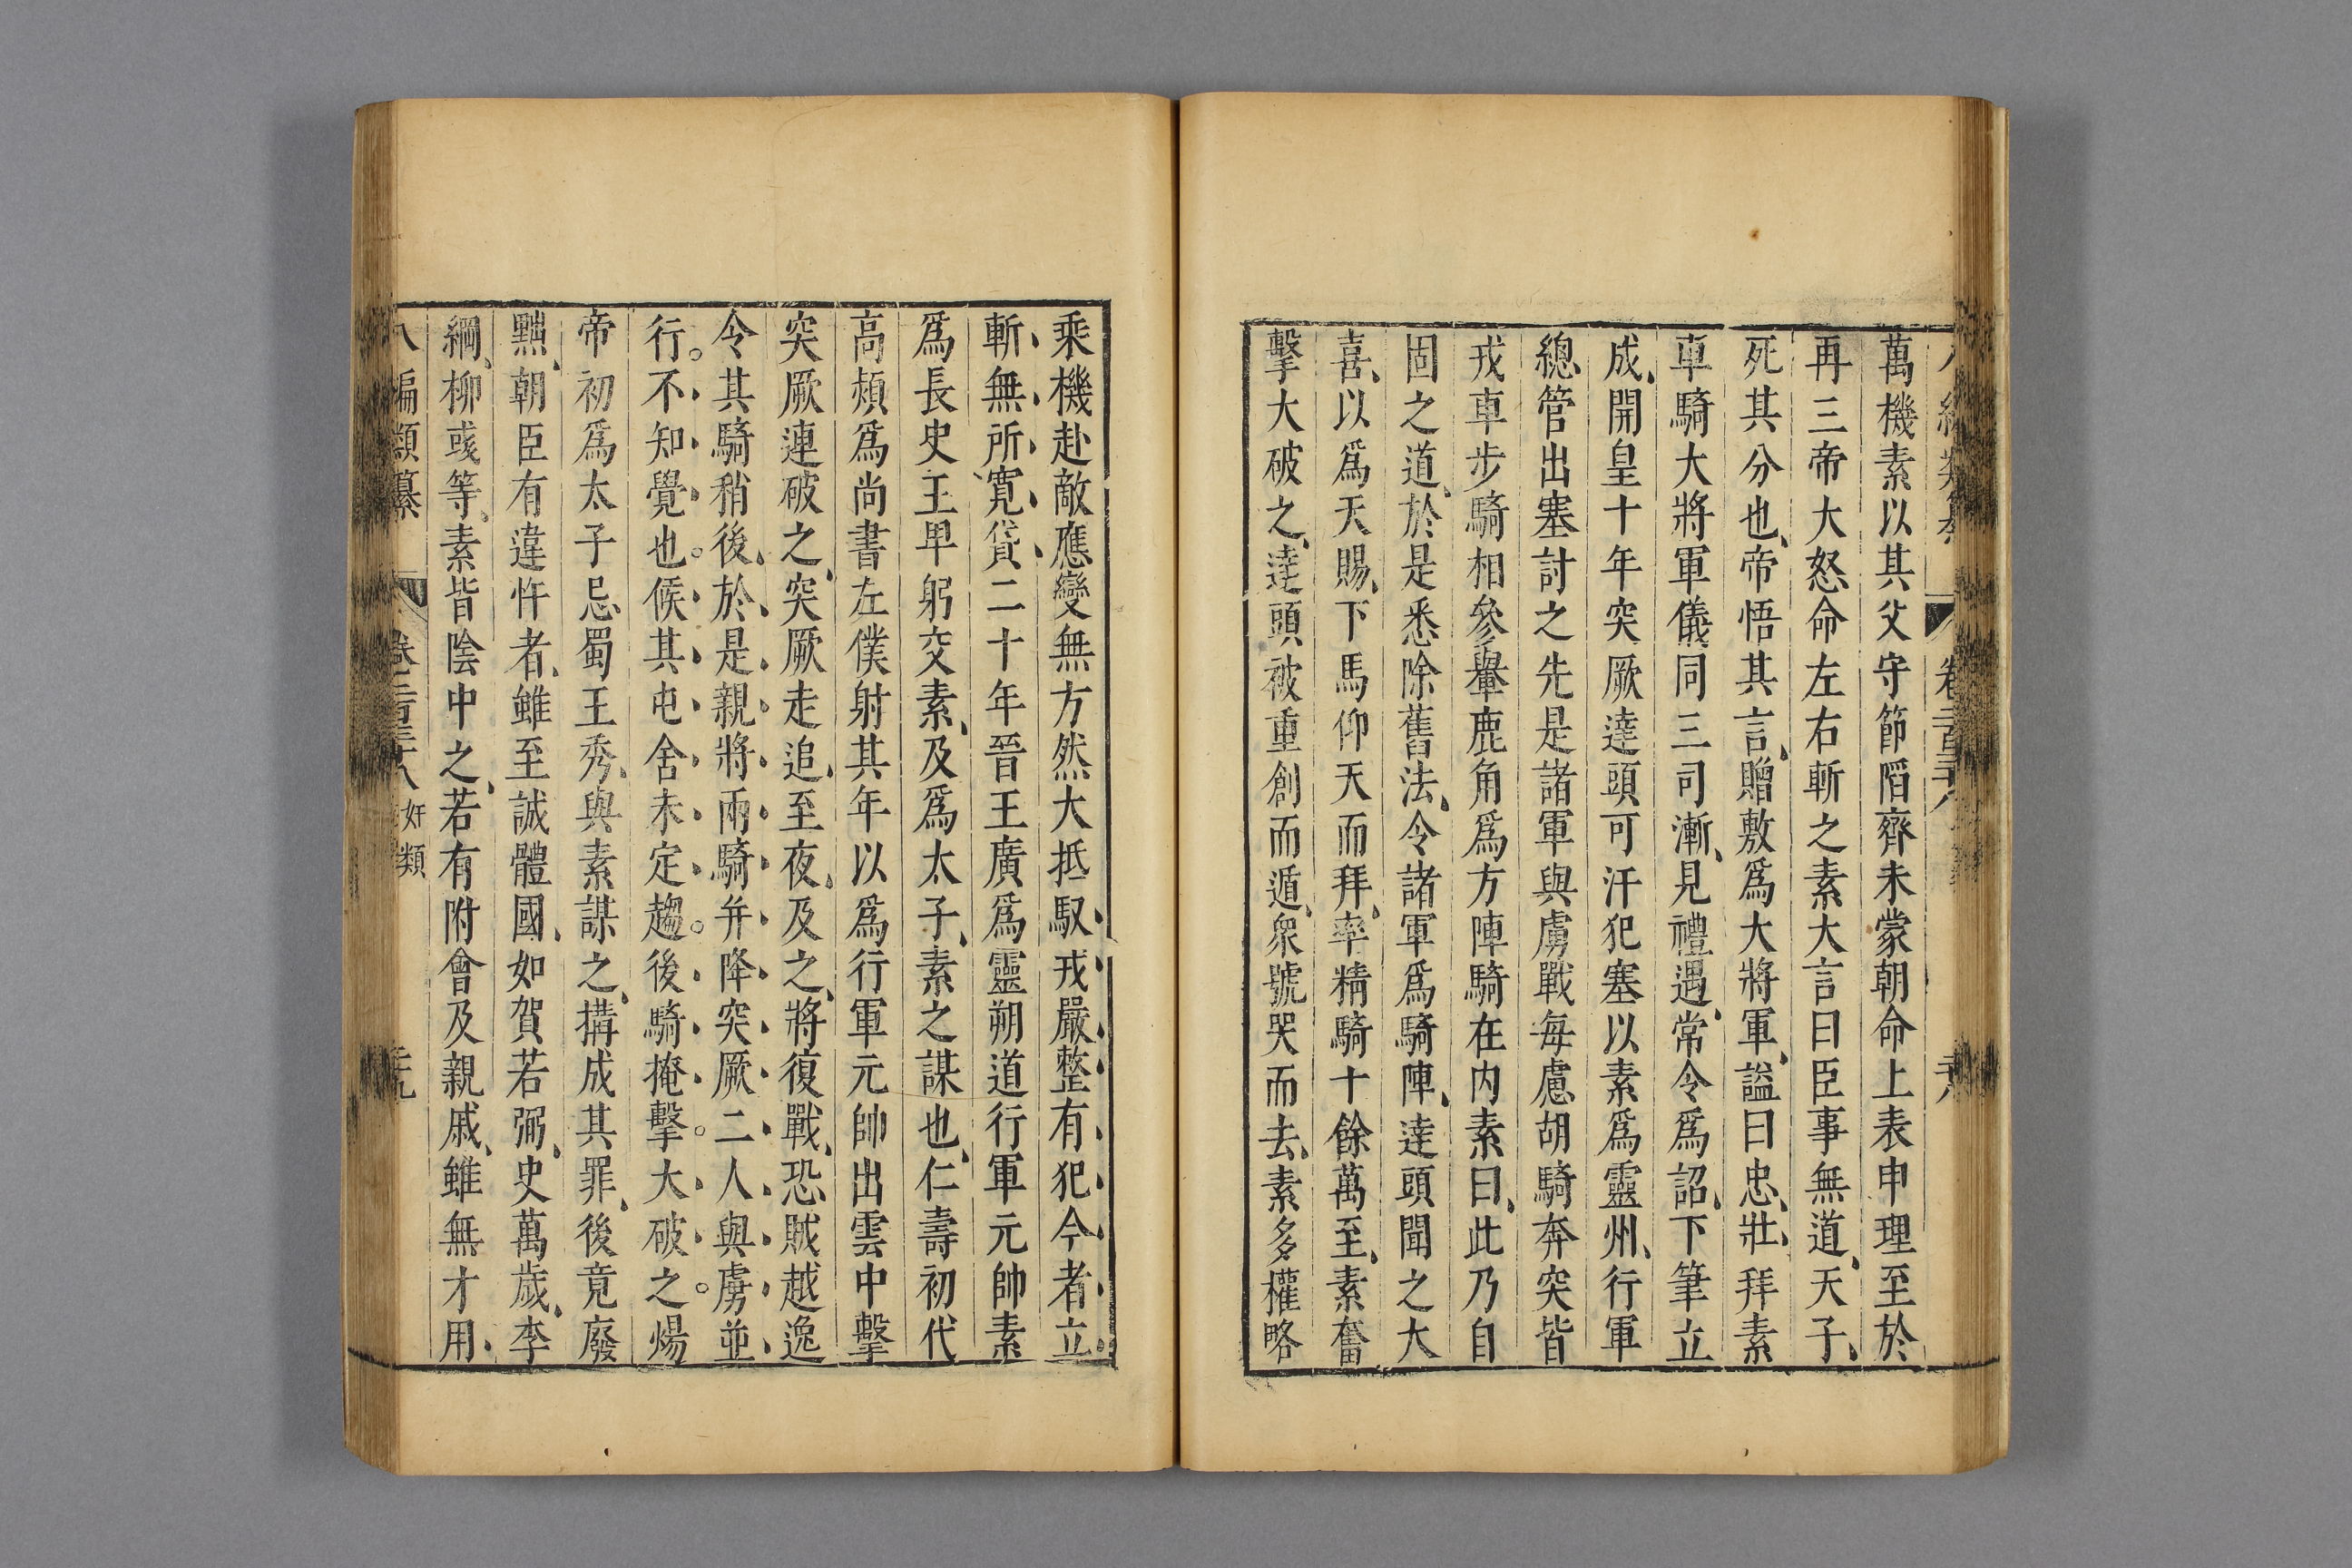 萬機素以其父守節陷齊未蒙朝命上表申理至於
再三帝大怒命左右斬之素大言曰臣事無道天子
死其分也帝悟其言贈敷爲大將軍謚曰忠壯拜素
車騎大將軍儀同三司漸見禮遇常令爲詔下筆立
成開皇十年突厥達頭可汗犯塞以素爲靈州行軍
總管出塞討之先是諸軍與虜戰每慮胡騎奔突皆
戎車步騎相參轝鹿角爲方陣騎在内素曰此乃自
固之道於是悉除舊法令諸軍爲騎陣達頭聞之大
喜以爲天賜下馬仰天而拜率精騎十餘萬至素奮
擊大破之達頭被重創而遁衆號哭而去素多權略
乘機赴敵應變無方然大抵馭戎嚴整有犯令者立
斬無所寛貸二十年晉王廣爲靈朔道行軍元帥素
爲長史王卑躬交素及爲太子素之謀也仁壽初代
高熲爲尚書左僕射其年以爲行軍元帥出雲中擊
突厥連破之突厥走追至夜及之將復戰恐賊越逸
令其騎稍後於是親將兩騎并降突厥二人與虜並
行。不知覺也。候其屯舍未定趨。後騎掩擊。大破之。煬
帝初爲太子忌蜀王秀與素謀之搆成其罪後竟廢
黜朝臣有違忤者雖至誠體國如賀若弼史萬歲李
綱柳彧等素皆陰中之若有附會及親戚雖無才用
八編類纂 卷二百三十八 奸類 三十九